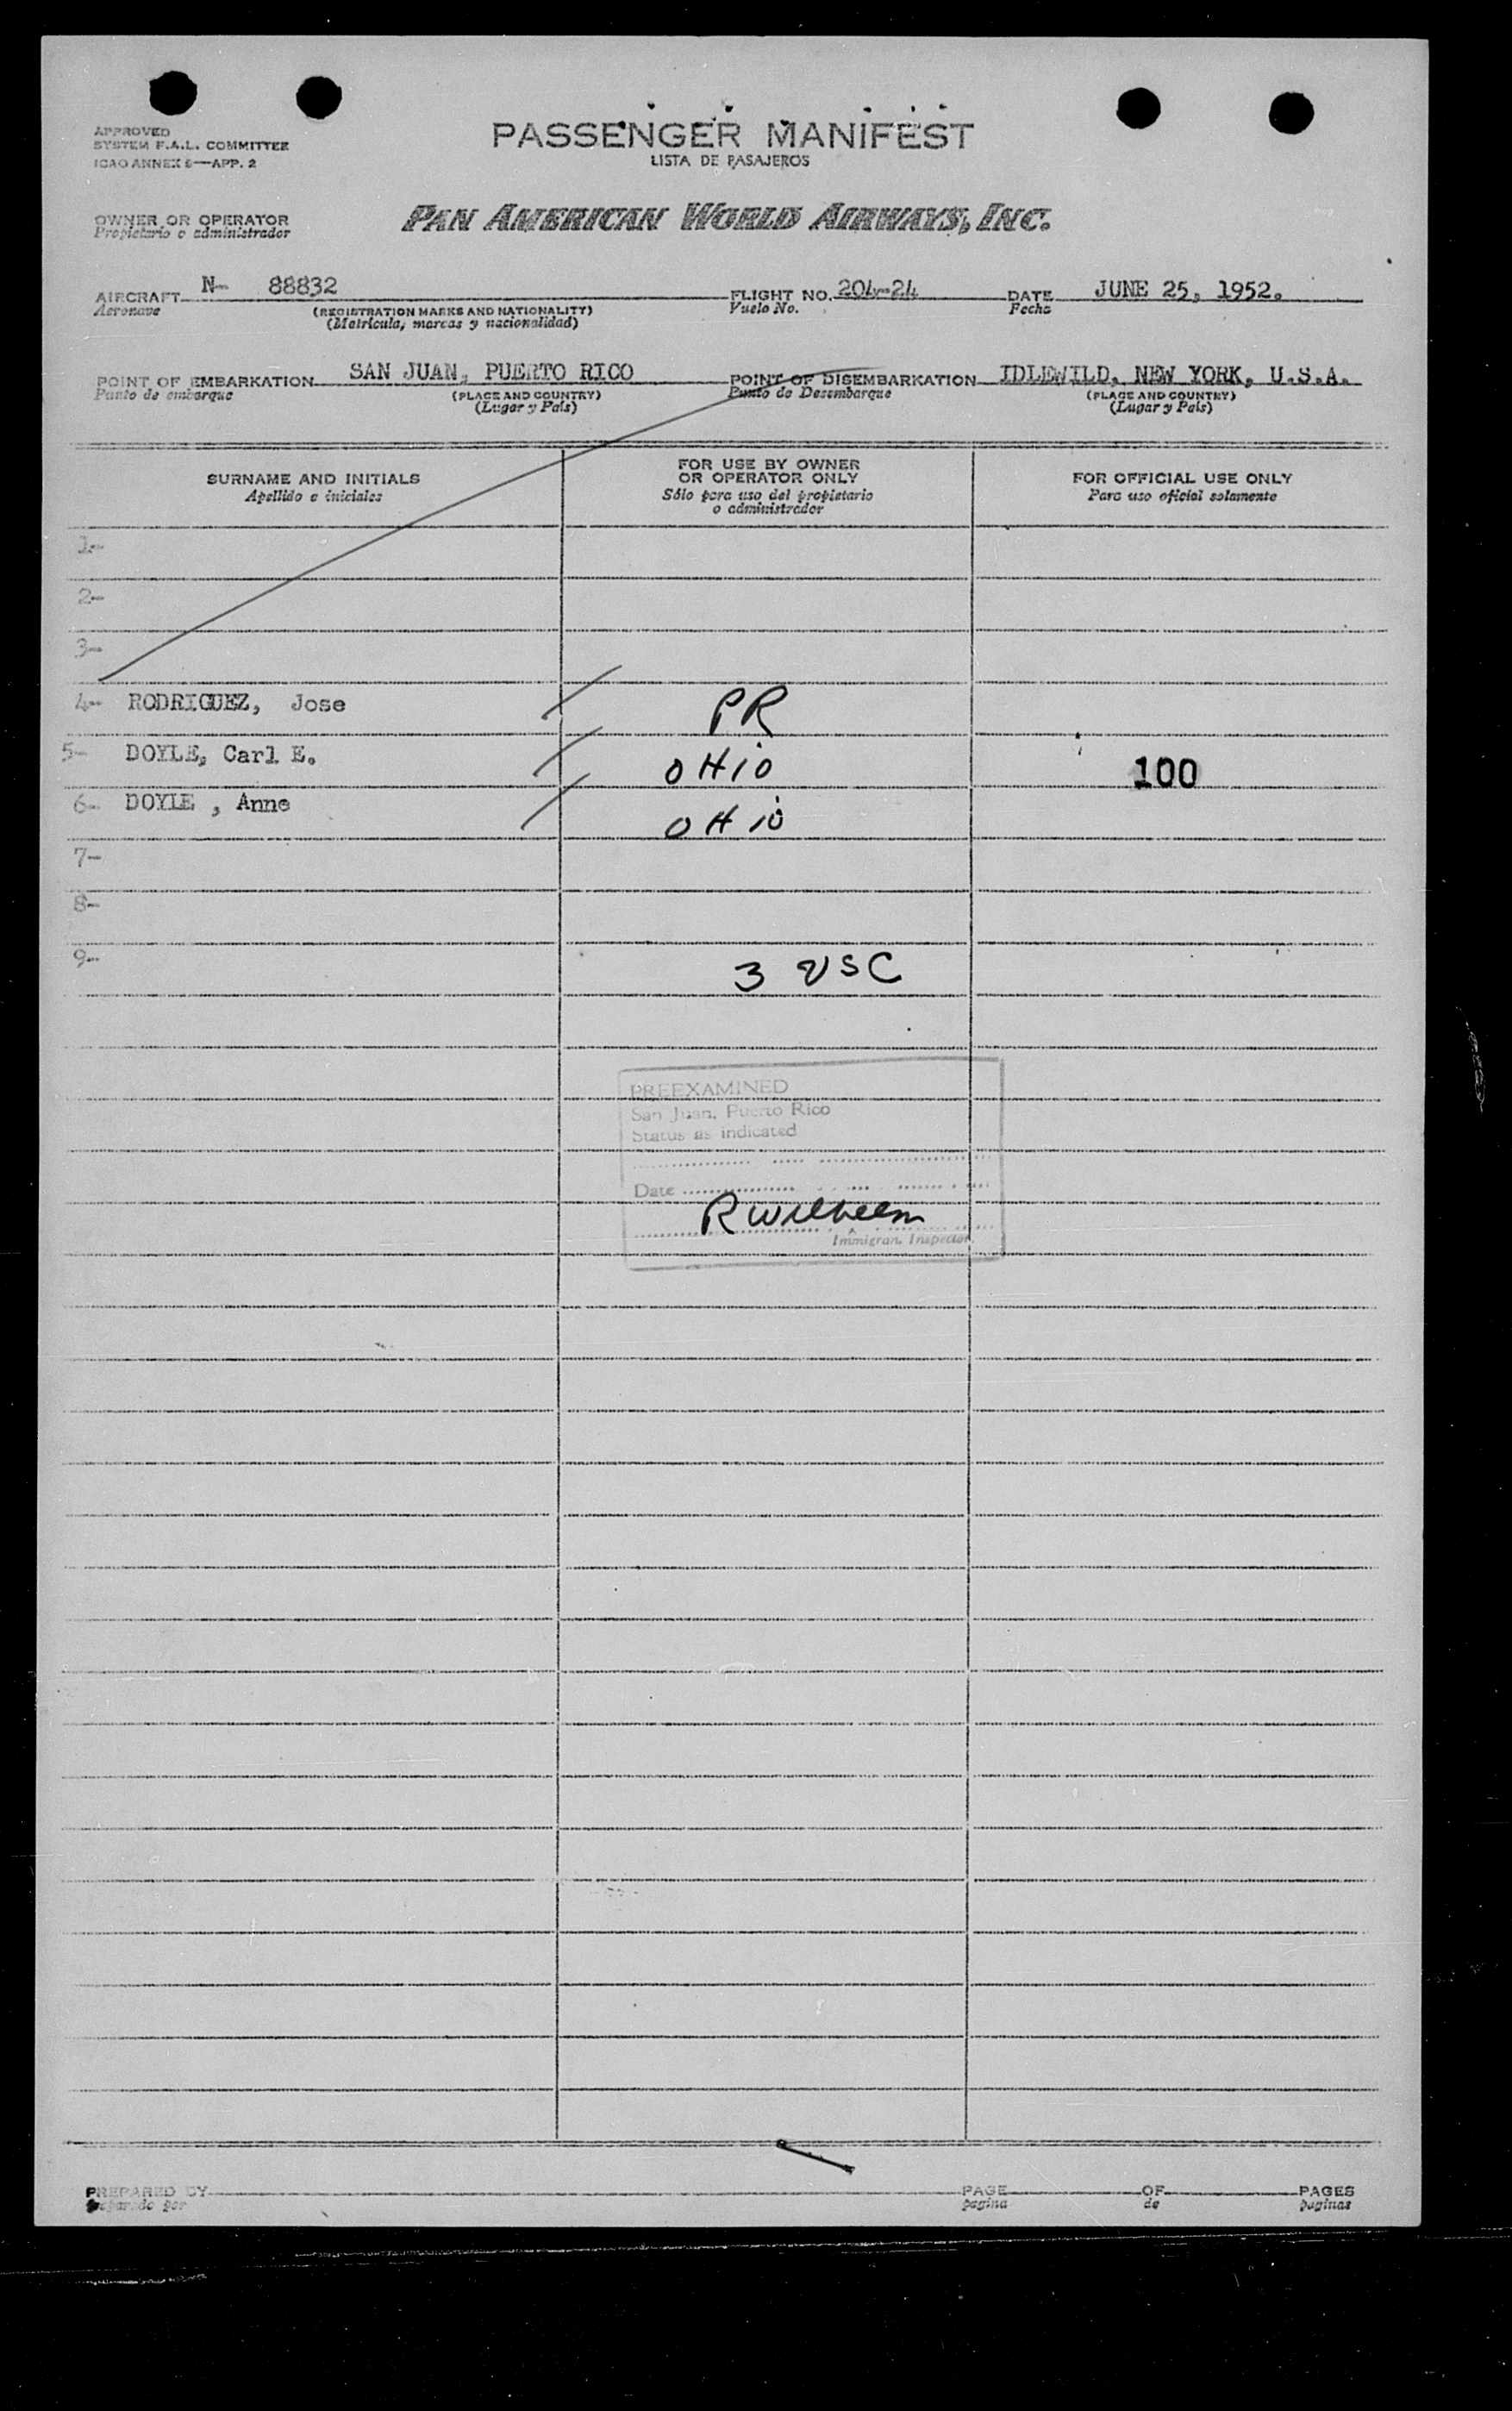 APPROVED
SYSTEM F.A.L. COMMITTEE
ICAO ANNEX 9—APP. 2
PASSENGER MANIFEST
LISTA DE PASAJEROS
OWNER OR OPERATOR
Propietario o administrador
PAN AMERICAN WORLD AIRWAYS, INC.
AIRCRAFT N- 88832 FLIGHT NO. 204-24 DATE JUNE 25, 1952.
Aeronave (REGISTRATION MARKS AND NATIONALITY) Vuelo No. Fecha
(Matrícula, marcas y nacionalidad)
POINT OF EMBARKATION SAN JUAN, PUERTO RICO POINT OF DISEMBARKATION IDLEWILD, NEW YORK, U.S.A.
Punto de embarque (PLACE AND COUNTRY) Punto de Desembarque (PLACE AND COUNTRY)
(Lugar y País) (Lugar y País)
SURNAME AND INITIALS FOR USE BY OWNER OR OPERATOR ONLY FOR OFFICIAL USE ONLY
Apellido e iniciales Sólo para uso del propietario o administrador Para uso oficial solamente
1-
2-
3-
4- RODRIGUEZ, Jose PR
5- DOYLE, Carl E. OHIO 100
6- DOYLE , Anne OHIO
7-
8-
9-
3 USC
PREEXAMINED
San Juan, Puerto Rico
Status as indicated
Date
R Wilhelm
Immigran. Inspector
PREPARED BY PAGE OF PAGES
Preparado por pagina de paginas